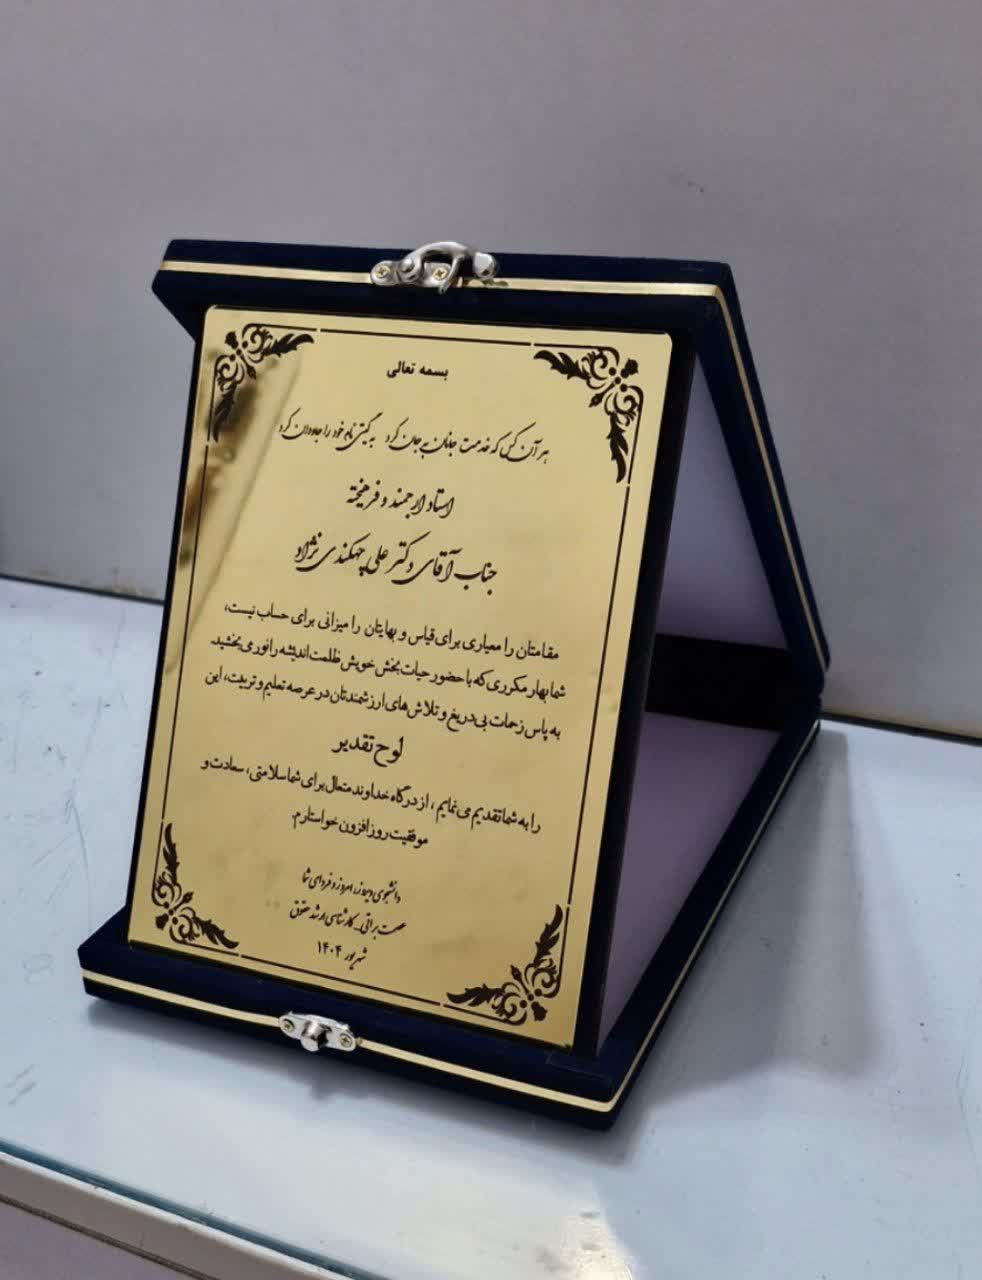 بسمه تعالی
هر آن کس که خدمت جنان به جان کرد به گیتی نام خود را جاودان کرد
استاد ارجمند و فرهیخته
جناب آقای دکتر علی چهکندی نژاد
مقامتان را معیاری برای قیاس و بهایتان را میزانی برای حساب نیست،
شما بهار مکرری که با حضور حیات بخش خویش ظلمت اندیشه را نور می‌بخشید.
به پاس زحمات بی دریغ و تلاش‌های ارزشمندتان در عرصه تعلیم و تربیت، این
لوح تقدیر
را به شما تقدیم می نمایم، از درگاه خداوند متعال برای شما سلامتی، سعادت و
موفقیت روز افزون خواستارم.
دانشجوی دیروز، امروز و فردای شما
عصمت براتی - کارشناسی ارشد حقوق
شهریور ۱۴۰۴